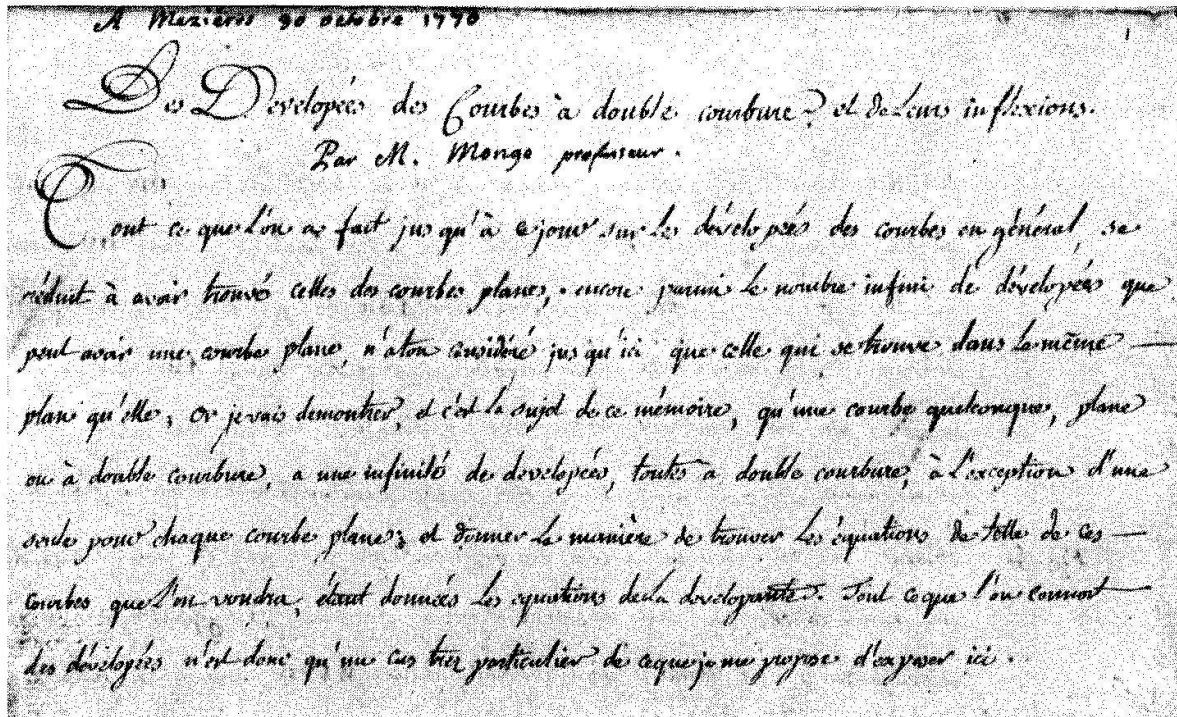 A Mezières 30 octobre 1770
1
Des Developées des Courbes à double courbure, et de Leurs inflexions.
Par M. Monge professeur.
Tout ce que l'on a fait jusqu'à ce jour sur les dévelopées des courbes en général, se
réduit à avoir trouvé celles des courbes planes, encore parmi le nombre infini de dévelopées que
peut avoir une courbe plane, n'aton considéré jusqu'ici que celle qui se trouve dans le même —
plan qu'elle; or je vais demontrer, et c'est le sujet de ce mémoire, qu'une courbe quelconque, plane
ou à double courbure, a une infinité de developées, toutes a double courbure, à l'exception d'une
seule pour chaque courbe plane; et donner la manière de trouver les équations de telle de ces —
courbes que l'on voudra, étant données les equations de la developante. Tout ce que l'on connoit
des dévelopées n'est donc qu'un cas trez particulier de ce que je me propose d'exposer ici.